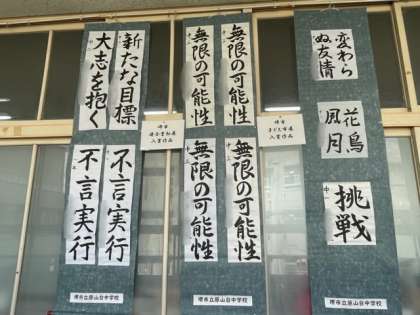 新たな目標
大志を抱く
不言実行
不言実行
堺市立原山台中学校
無限の可能性
無限の可能性
無限の可能性
無限の可能性
堺市立原山台中学校
入賞作品
堺市
子ども書展
入賞作品
変わら
ぬ友情
花鳥
風月
挑戦
堺市立原山台中学校